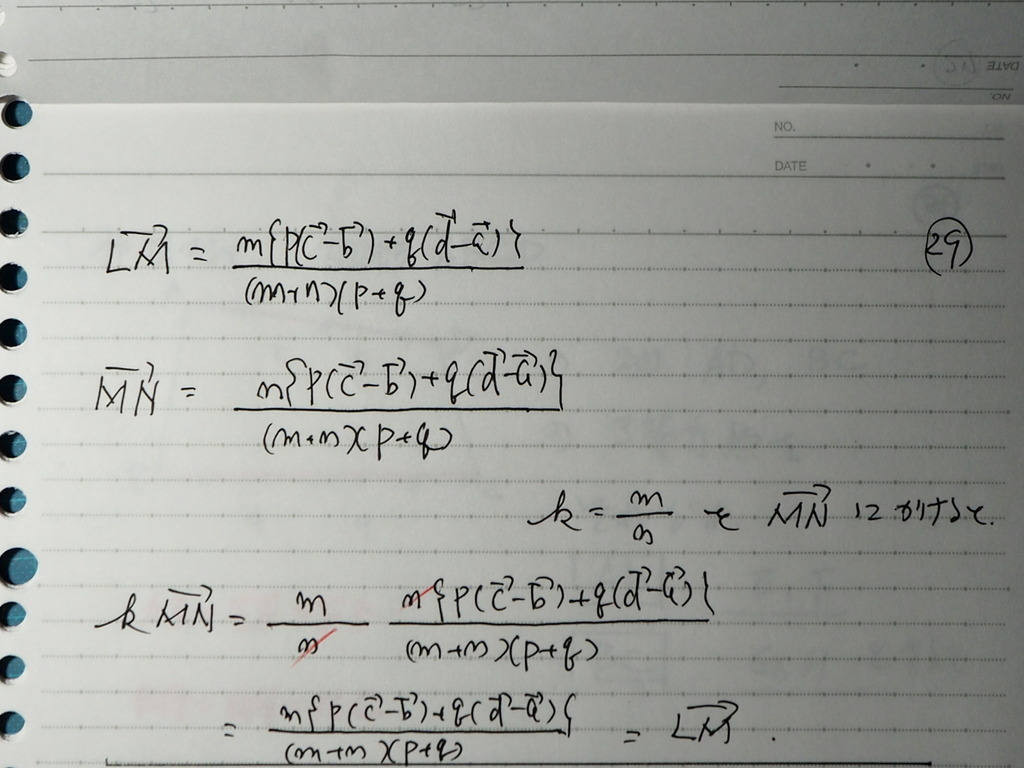 NO.
DATE
LM→ = m{p(c→-b→)+q(d→-a→)} / (m+n)(p+q)
29
MN→ = n{p(c→-b→)+q(d→-a→)} / (m+n)(p+q)
k = m/n を MN→ にかけると.
k MN→ = m/n n{p(c→-b→)+q(d→-a→)} / (m+n)(p+q)
= m{p(c→-b→)+q(d→-a→)} / (m+n)(p+q) = LM→ .